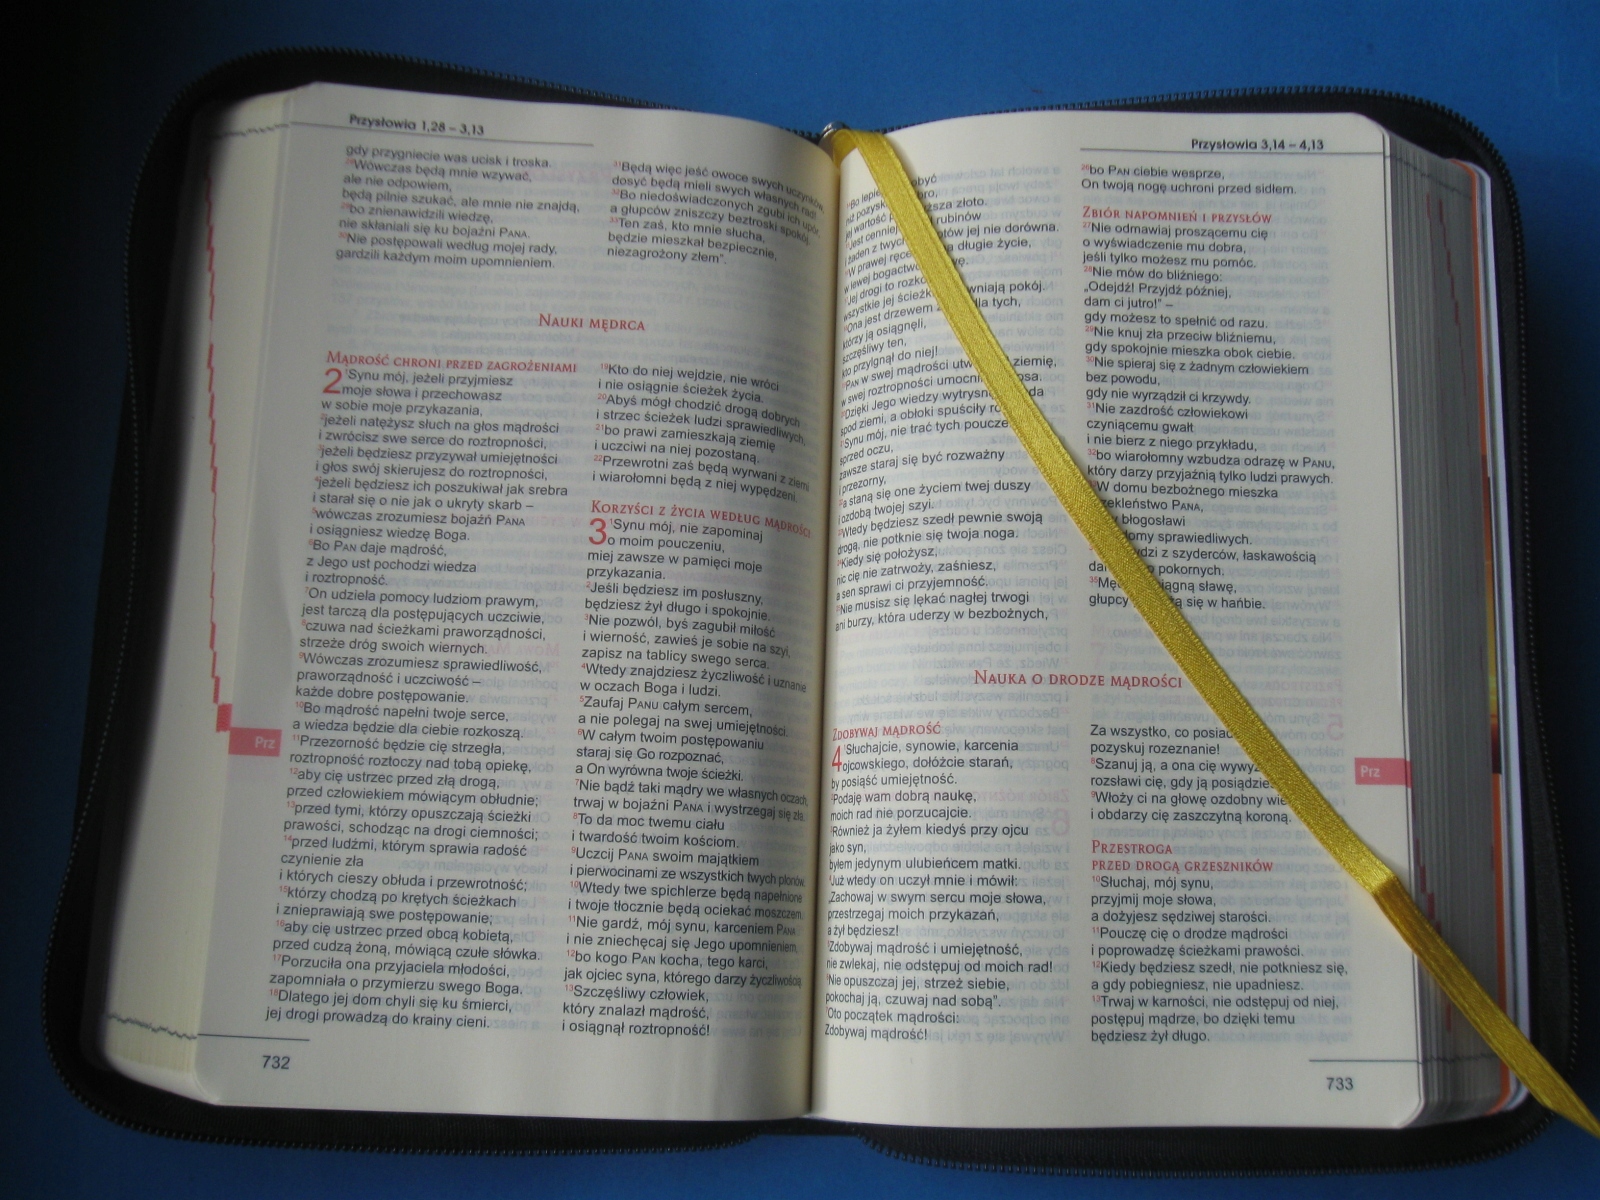 Przysłowia 1,28 – 3,13
gdy przygniecie was ucisk i troska.
28Wówczas będą mnie wzywać,
ale nie odpowiem,
będą pilnie szukać, ale mnie nie znajdą,
29bo znienawidzili wiedzę,
nie skłaniali się ku bojaźni PANA.
30Nie postępowali według mojej rady,
gardzili każdym moim upomnieniem.
31Będą więc jeść owoce swych uczynków,
dosyć będą mieli swych własnych rad!
32Bo niedoświadczonych zgubi ich upór,
a głupców zniszczy beztroski spokój.
33Ten zaś, kto mnie słucha,
będzie mieszkał bezpiecznie,
niezagrożony złem”.
NAUKI MĘDRCA
MĄDROŚĆ CHRONI PRZED ZAGROŻENIAMI
2 1Synu mój, jeżeli przyjmiesz
moje słowa i przechowasz
w sobie moje przykazania,
2jeżeli natężysz słuch na głos mądrości
i zwrócisz swe serce do roztropności,
3jeżeli będziesz przyzywał umiejętności
i głos swój skierujesz do roztropności,
4jeżeli będziesz ich poszukiwał jak srebra
i starał się o nie jak o ukryty skarb –
5wówczas zrozumiesz bojaźń PANA
i osiągniesz wiedzę Boga.
6Bo PAN daje mądrość,
z Jego ust pochodzi wiedza
i roztropność.
7On udziela pomocy ludziom prawym,
jest tarczą dla postępujących uczciwie,
8czuwa nad ścieżkami praworządności,
strzeże dróg swoich wiernych.
9Wówczas zrozumiesz sprawiedliwość,
praworządność i uczciwość –
każde dobre postępowanie.
10Bo mądrość napełni twoje serce,
a wiedza będzie dla ciebie rozkoszą.
11Przezorność będzie cię strzegła,
roztropność roztoczy nad tobą opiekę,
12aby cię ustrzec przed złą drogą,
przed człowiekiem mówiącym obłudnie;
13przed tymi, którzy opuszczają ścieżki
prawości, schodząc na drogi ciemności;
14przed ludźmi, którym sprawia radość
czynienie zła
i których cieszy obłuda i przewrotność;
15którzy chodzą po krętych ścieżkach
i znieprawiają swe postępowanie;
16aby cię ustrzec przed obcą kobietą,
przed cudzą żoną, mówiącą czułe słówka.
17Porzuciła ona przyjaciela młodości,
zapomniała o przymierzu swego Boga.
18Dlatego jej dom chyli się ku śmierci,
jej drogi prowadzą do krainy cieni.
19Kto do niej wejdzie, nie wróci
i nie osiągnie ścieżek życia.
20Abyś mógł chodzić drogą dobrych
i strzec ścieżek ludzi sprawiedliwych,
21bo prawi zamieszkają ziemię
i uczciwi na niej pozostaną.
22Przewrotni zaś będą wyrwani z ziemi
i wiarołomni będą z niej wypędzeni.
KORZYŚCI Z ŻYCIA WEDŁUG MĄDROŚCI
3 1Synu mój, nie zapominaj
o moim pouczeniu,
miej zawsze w pamięci moje
przykazania.
2Jeśli będziesz im posłuszny,
będziesz żył długo i spokojnie.
3Nie pozwól, byś zagubił miłość
i wierność, zawieś je sobie na szyi,
zapisz na tablicy swego serca.
4Wtedy znajdziesz życzliwość i uznanie
w oczach Boga i ludzi.
5Zaufaj PANU całym sercem,
a nie polegaj na swej umiejętności.
6W całym twoim postępowaniu
staraj się Go rozpoznać,
a On wyrówna twoje ścieżki.
7Nie bądź taki mądry we własnych oczach,
trwaj w bojaźni PANA i wystrzegaj się zła.
8To da moc twemu ciału
i twardość twoim kościom.
9Uczcij PANA swoim majątkiem
i pierwocinami ze wszystkich twych plonów.
10Wtedy twe spichlerze będą napełnione
i twoje tłocznie będą ociekać moszczem.
11Nie gardź, mój synu, karceniem PANA
i nie zniechęcaj się Jego upomnieniem,
12bo kogo PAN kocha, tego karci,
jak ojciec syna, którego darzy życzliwością.
13Szczęśliwy człowiek,
który znalazł mądrość,
i osiągnął roztropność!
Prz
732
Przysłowia 3,14 – 4,13
Bo lepiej obyć
niż pozysk bro,
jej wartość ższa złoto.
Jest cenniej rubinów
i żaden z twych otów jej nie dorówna.
W prawej ręce a długie życie,
w lewej bogactwo wę.
Jej drogi to rozko
wszystkie jej ścieżk wniają pokój.
Ona jest drzewem dla tych,
którzy ją osiągnęli,
szczęśliwy ten,
kto przylgnął do niej!
PAN w swej mądrości utw ziemię,
w swej roztropności umocni osa.
Dzięki Jego wiedzy wytrysn da
spod ziemi, a obłoki spuściły ro
Synu mój, nie trać tych poucze
sprzed oczu,
zawsze staraj się być rozważny
i przezorny,
a staną się one życiem twej duszy
i ozdobą twojej szyi.
Wtedy będziesz szedł pewnie swoją
drogą, nie potknie się twoja noga.
Kiedy się położysz,
nic cię nie zatrwoży, zaśniesz,
a sen sprawi ci przyjemność.
Nie musisz się lękać nagłej trwogi
ani burzy, która uderzy w bezbożnych,
26bo PAN ciebie wesprze,
On twoją nogę uchroni przed sidłem.
ZBIÓR NAPOMNIEŃ I PRZYSŁÓW
27Nie odmawiaj proszącemu cię
o wyświadczenie mu dobra,
jeśli tylko możesz mu pomóc.
28Nie mów do bliźniego:
„Odejdź! Przyjdź później,
dam ci jutro!” –
gdy możesz to spełnić od razu.
29Nie knuj zła przeciw bliźniemu,
gdy spokojnie mieszka obok ciebie.
30Nie spieraj się z żadnym człowiekiem
bez powodu,
gdy nie wyrządził ci krzywdy.
31Nie zazdrość człowiekowi
czyniącemu gwałt
i nie bierz z niego przykładu,
32bo wiarołomny wzbudza odrazę w PANU,
który darzy przyjaźnią tylko ludzi prawych.
W domu bezbożnego mieszka
zekleństwo PANA,
y błogosławi
domy sprawiedliwych.
dzi z szyderców, łaskawością
dar o pokornych,
35Męd iągną sławę,
głupcy ą się w hańbie.
NAUKA O DRODZE MĄDROŚCI
ZDOBYWAJ MĄDROŚĆ
4 1Słuchajcie, synowie, karcenia
ojcowskiego, dołóżcie starań,
by posiąść umiejętność.
2Podaję wam dobrą naukę,
moich rad nie porzucajcie.
3Również ja żyłem kiedyś przy ojcu
jako syn,
byłem jedynym ulubieńcem matki.
4Już wtedy on uczył mnie i mówił:
„Zachowaj w swym sercu moje słowa,
przestrzegaj moich przykazań,
a żył będziesz!
Zdobywaj mądrość i umiejętność,
nie zwlekaj, nie odstępuj od moich rad!
Nie opuszczaj jej, strzeż siebie,
pokochaj ją, czuwaj nad sobą”.
Oto początek mądrości:
Zdobywaj mądrość!
Za wszystko, co posiad
pozyskuj rozeznanie!
8Szanuj ją, a ona cię wywyż
rozsławi cię, gdy ją posiądzies
9Włoży ci na głowę ozdobny wie
i obdarzy cię zaszczytną koroną.
PRZESTROGA
PRZED DROGĄ GRZESZNIKÓW
10Słuchaj, mój synu,
przyjmij moje słowa,
a dożyjesz sędziwej starości.
11Pouczę cię o drodze mądrości
i poprowadzę ścieżkami prawości.
12Kiedy będziesz szedł, nie potkniesz się,
a gdy pobiegniesz, nie upadniesz.
13Trwaj w karności, nie odstępuj od niej,
postępuj mądrze, bo dzięki temu
będziesz żył długo.
Prz
733